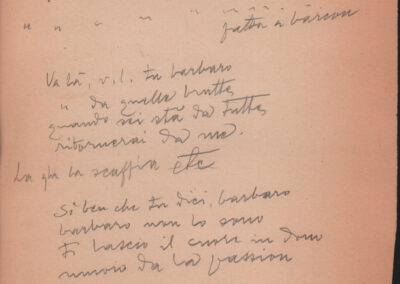 " " " " " " " fatta a barcon
Va là, v.l. tu barbaro
" da quelle brutte,
quando sei stà da tutte
ritornerai da me.
La gha la scuffia etc
Si ben che tu dici, barbaro
barbaro non lo sono
Ti lascio il cuore in dono
muoio da la passion